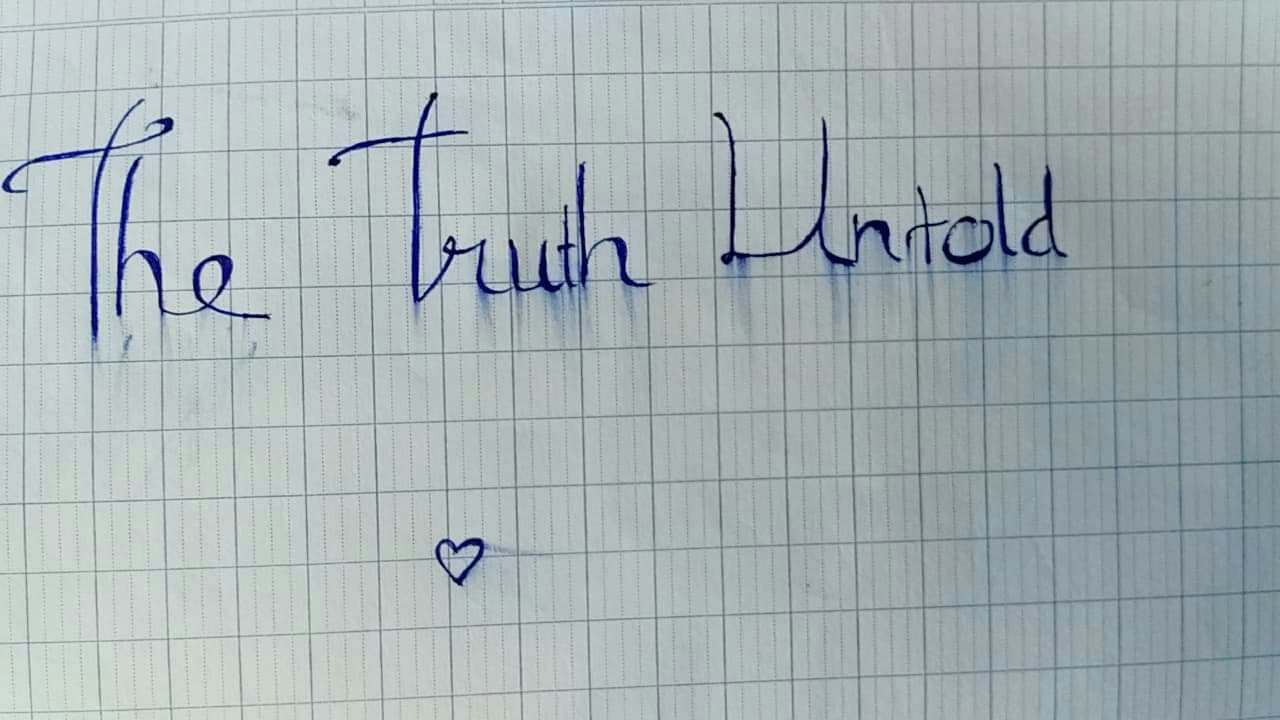 The Truth Untold